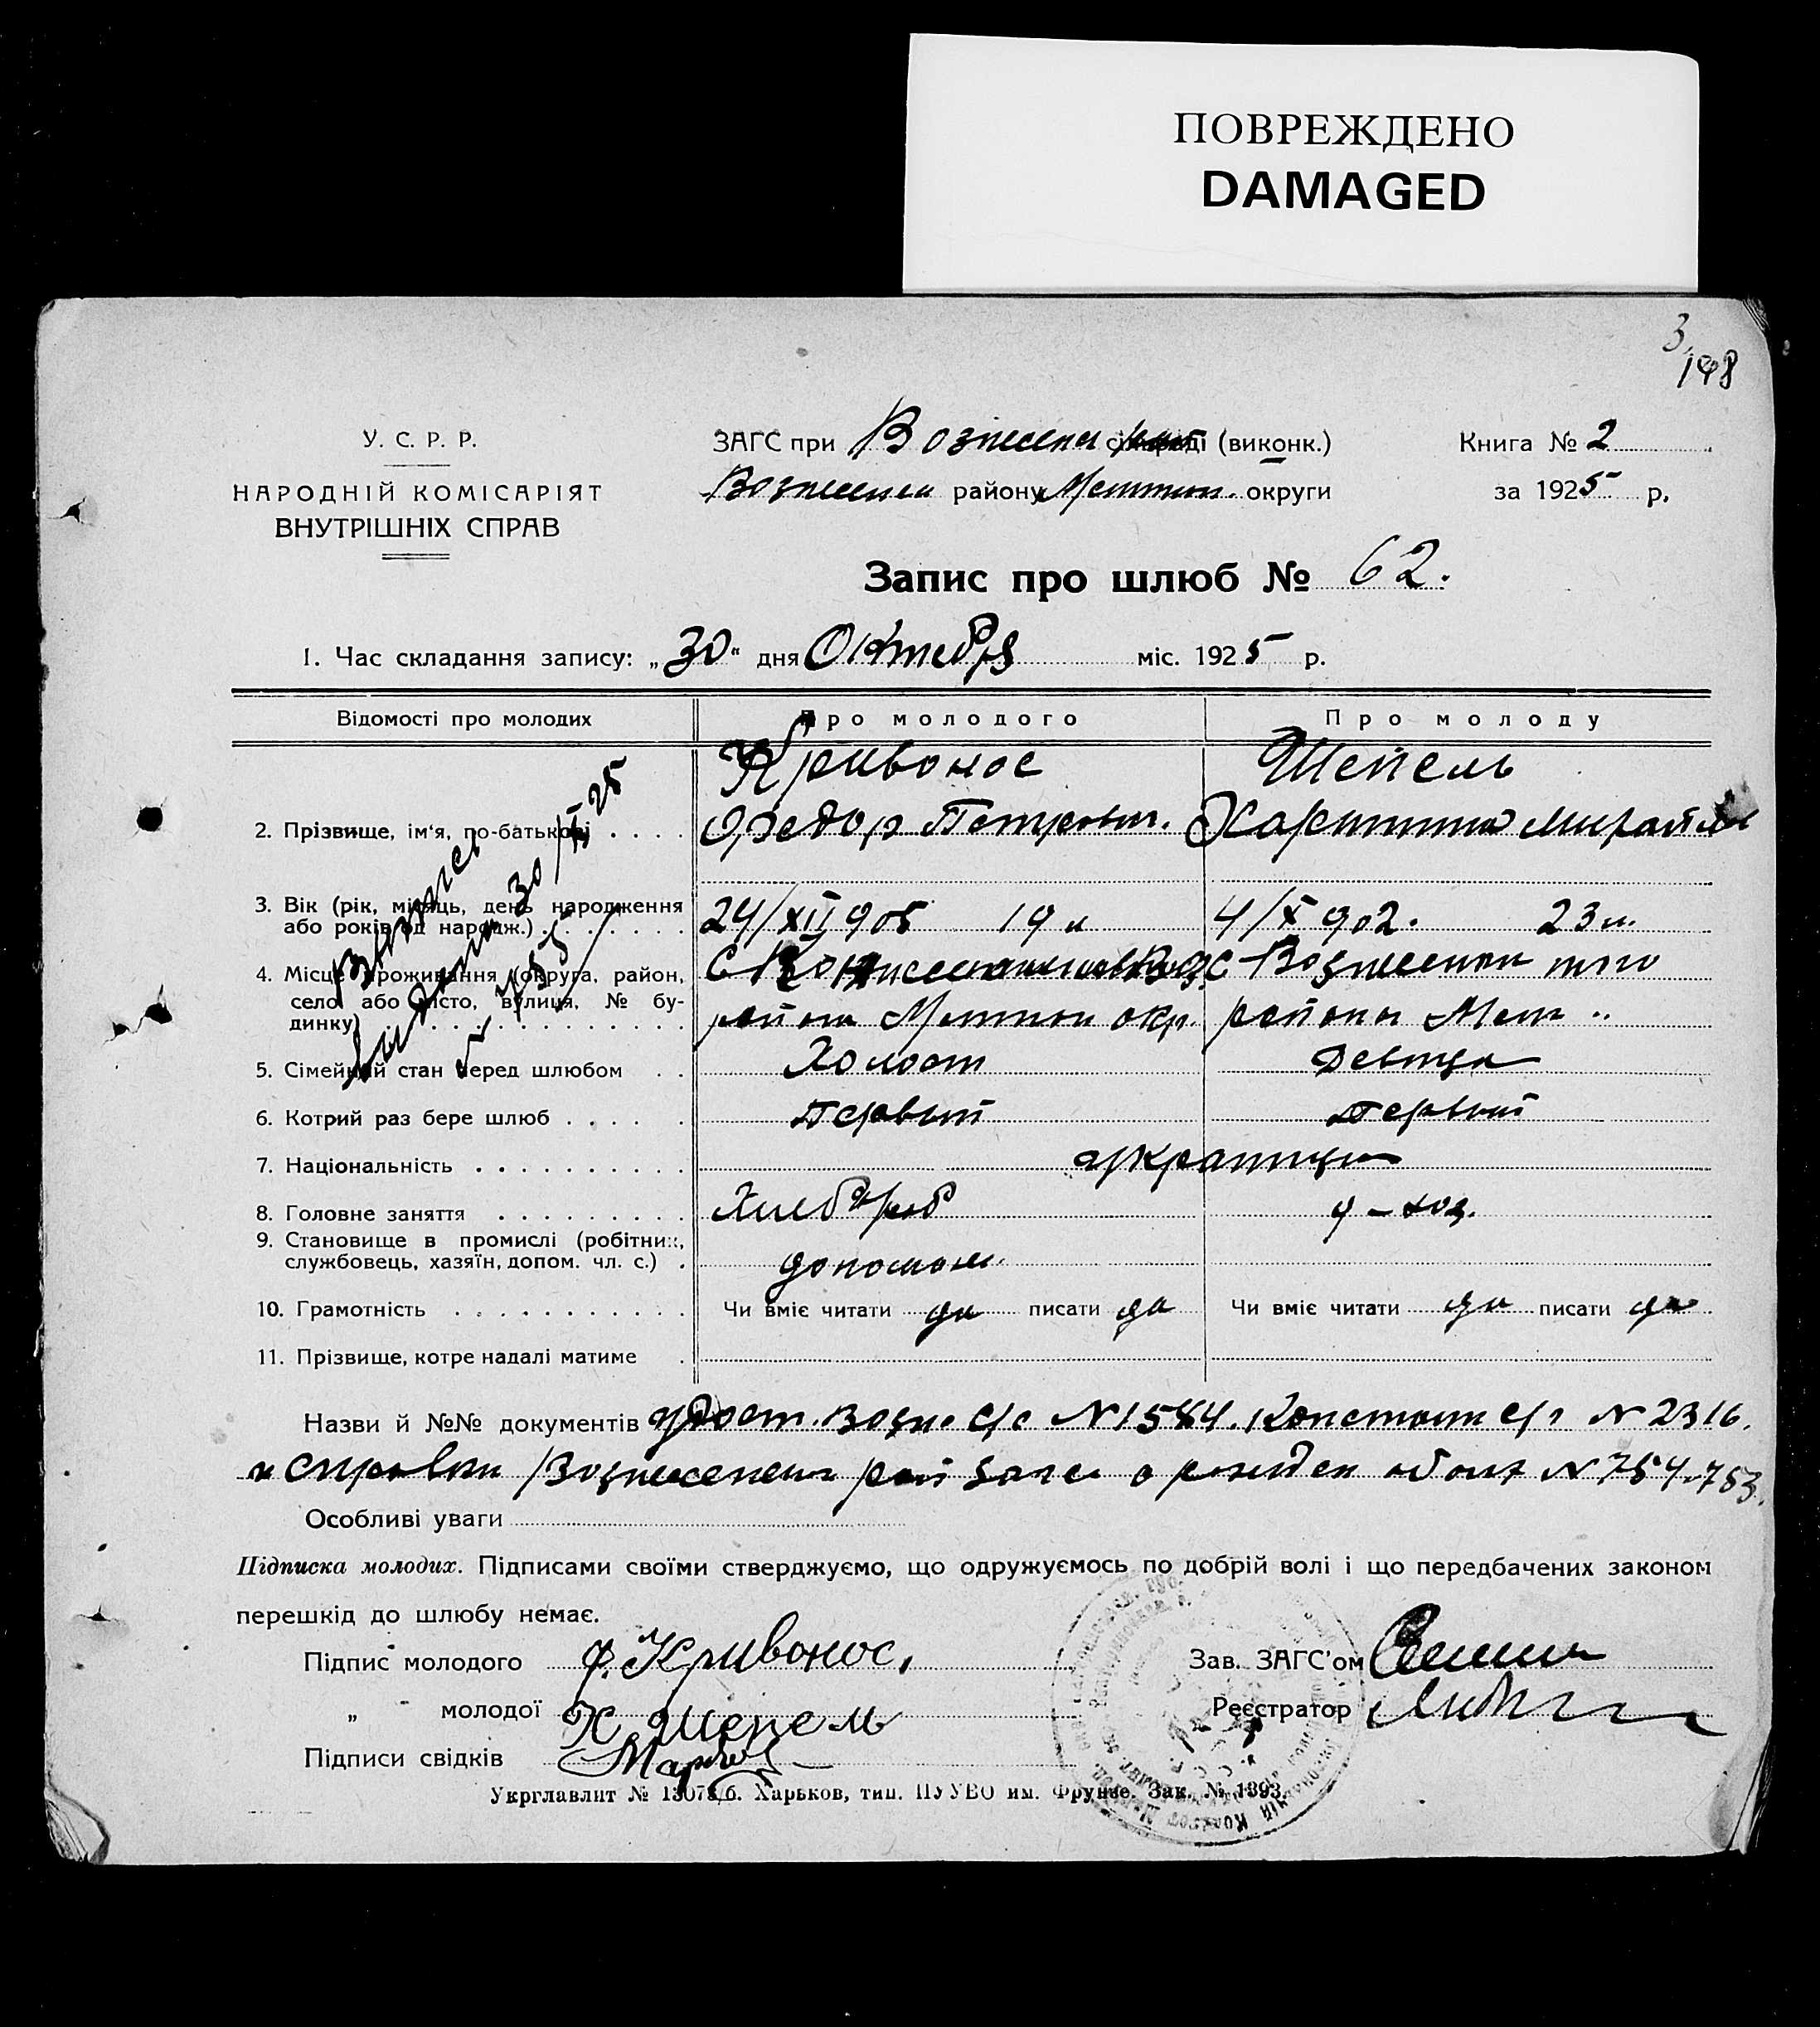 ПОВРЕЖДЕНО
DAMAGED
3
148
У. С. Р. Р.
НАРОДНІЙ КОМІСАРІЯТ
ВНУТРІШНІХ СПРАВ
ЗАГС при Вознесен (виконк.)
Книга № 2
району округи
за 1925 р.
Запис про шлюб № 62.
1. Час складання запису: „30“ дня Октября міс. 1925 р.
Відомості про молодих
Про молодого
Про молоду
Кривонос
Шепель
2. Прізвище, ім‘я, по-батькові . . . .
Федор Петрович.
Харитина
30/IX 25
3. Вік (рік, місяць, день народження
або років од народж.) . . . . . . .
24/XII 905 19 л
4/X 902. 23 л.
4. Місце проживання (округа, район,
село або місто, вулиця, № бу-
динку) . . . . . . . . . . . . .
района окр.
района
5. Сімейний стан перед шлюбом . .
Холост
Девица
6. Котрий раз бере шлюб . . . . .
Первый
Первый
7. Національність . . . . . . . . . .
украинцы
8. Головне заняття . . . . . . . . .
Хлебороб
д-хоз.
9. Становище в промислі (робітник,
службовець, хазяїн, допом. чл. с.) .
допомож.
10. Грамотність . . . . . . . . . . .
Чи вміє читати да писати да
Чи вміє читати да писати да
11. Прізвище, котре надалі матиме .
Назви й №№ документів удост. Возне с/с N 1584. Констант с/с N 2316.
и справки Вознесенск рай загса о N 754-753.
Особливі уваги
Підписка молодих. Підписами своїми стверджуємо, що одружуємось по добрій волі і що передбачених законом
перешкід до шлюбу немає.
Підпис молодого Ф. Кривонос,
Зав. ЗАГС’ом
„ молодої Х Шепель
Реєстратор
Підписи свідків
Укрглавлит № 13078/б. Харьков, тип. ПУУВО им. Фрунзе. Зак. № 1393.